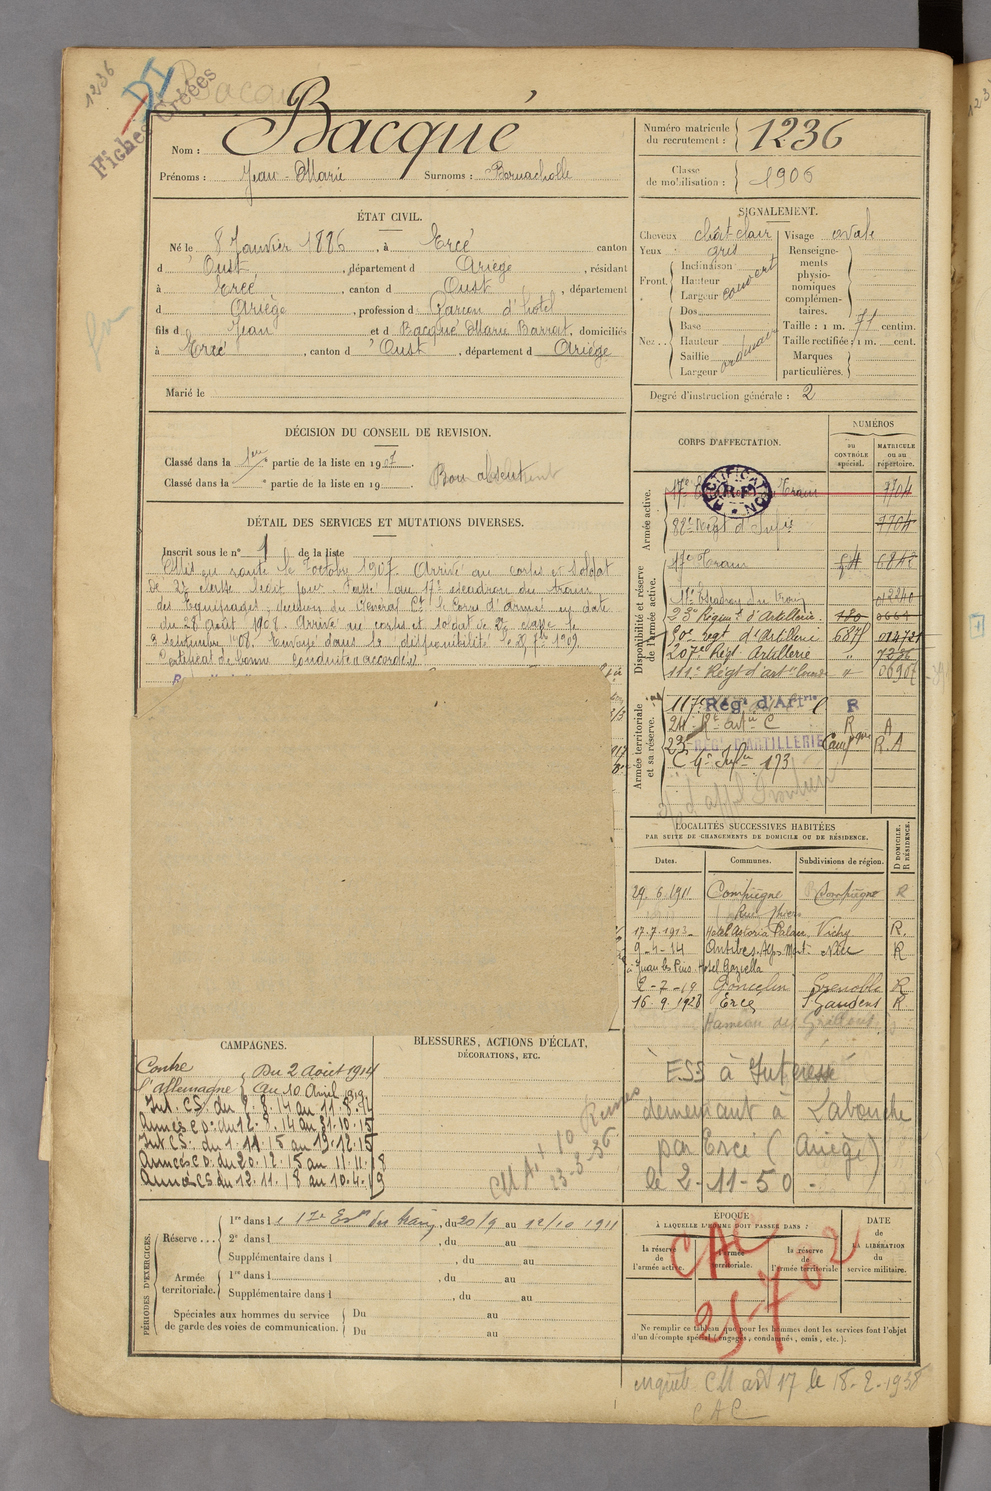 1236
DI
Fiches Créées
Bacqué
Nom : Bacqué
Prénoms : Jean-Marie Surnoms : Bernacholle
Numéro matricule du recrutement : 1236
Classe de mobilisation : 1906
ÉTAT CIVIL.
Né le 8 Janvier 1886, à Ercé canton
d'Oust, département d Ariège, résidant
à Ercé, canton d Oust, département
d Ariège, profession d Garçon d'hôtel
fils d Jean et d Bacqué Marie Barrat, domiciliés
à Ercé, canton d'Oust, département d Ariège
Marié le
SIGNALEMENT.
Cheveux chât-clair Visage ovale
Yeux gris
Front. Inclinaison
Hauteur
Largeur couvert
Nez.. Dos
Base
Hauteur
Saillie
Largeur ordinaire
Renseignements physionomiques complémentaires.
Taille : 1 m. 71 centim.
Taille rectifiée : 1 m. cent.
Marques particulières.
Degré d'instruction générale : 2
DÉCISION DU CONSEIL DE REVISION.
Classé dans la 1ère partie de la liste en 1907.
Classé dans la partie de la liste en 19
Bon absent
DÉTAIL DES SERVICES ET MUTATIONS DIVERSES.
Inscrit sous le n° 1 de la liste
Mis en route le 7 octobre 1907. Arrivé au corps et soldat
de 2e classe ledit jour. Passé au 17e escadron du train
des Equipages, section du Général Ct le Corps d'armée en date
du 28 Août 1908. Arrivé au corps et soldat de 2e classe le
3 septembre 1908. Envoyé dans la disponibilité le 25 7bre 1909.
Certificat de bonne conduite accordé.
CORPS D'AFFECTATION.
NUMÉROS
au CONTRÔLE spécial.
MATRICULE ou au répertoire.
Armée active.
17e Train 7704
RECTIFICATION
R.F.
82e Régt d'Infie 7704
Disponibilité et réserve de l'armée active.
17e Train 6848
17e Escadron du train 01240
23e Régimt d'Artillerie 780
50e regt d'Artillerie 6875 014721
207e Régt Artillerie " 7226
111e Régt d'art ie lourde " 06907
Armée territoriale et sa réserve.
117e Régt d'Artrie C R
24 Rt artie C R A
23 D'ARTILLERIE Campgne R.A
C 4e Infie 173
LOCALITÉS SUCCESSIVES HABITÉES
PAR SUITE DE CHANGEMENTS DE DOMICILE OU DE RÉSIDENCE.
D DOMICILE. R RÉSIDENCE.
Dates. Communes. Subdivisions de région.
29.6.1911 Compiègne Compiègne R
Rue Thiers
17.7.1913 Hotel Astoria Palace Vichy R.
9-4-14 Antibes Alpes Mmes Nice R
à Juan les Pins Hotel Graziella
2-7-19 Goncelin Grenoble R
16.9.1928 Ercé St Gaudens R
Hameau de
ESS à Intéressé
demeurant à Labouche
par Ercé (Ariège)
le 2-11-50 -
CAMPAGNES.
Contre l'Allemagne Du 2 Août 1914
Au 10 Avril 1919
Int. C.S. du 2.8.14 au 11.8.14
Armées C.D. du 12.8.14 au 31.10.15
Int. C.S. du 1.11.15 au 19.12.15
Armées C.D. du 20.12.15 au 11.11.18
Armées C.S. du 12.11.18 au 10.4.19
BLESSURES, ACTIONS D'ÉCLAT,
DÉCORATIONS, ETC.
CM Art 10 Rennes
23-3-36
PÉRIODES D'EXERCICES.
Réserve... 1re dans le 17e Esc. du train, du 20/9 au 12/10 1911
2e dans l , du au
Supplémentaire dans l , du au
Armée territoriale. 1re dans l , du au
Supplémentaire dans l , du au
Spéciales aux hommes du service de garde des voies de communication. Du au
Du au
ÉPOQUE
À LAQUELLE L'HOMME DOIT PASSER DANS :
la réserve de l'armée active.
l'armée territoriale.
la réserve de l'armée territoriale
DATE de LA LIBÉRATION du service militaire.
CAC
25702
Ne remplir ce tableau que pour les hommes dont les services font l'objet
d'un décompte spécial (engagés, condamnés, omis, etc.).
CM art 17 le 18-2-1938
CAC